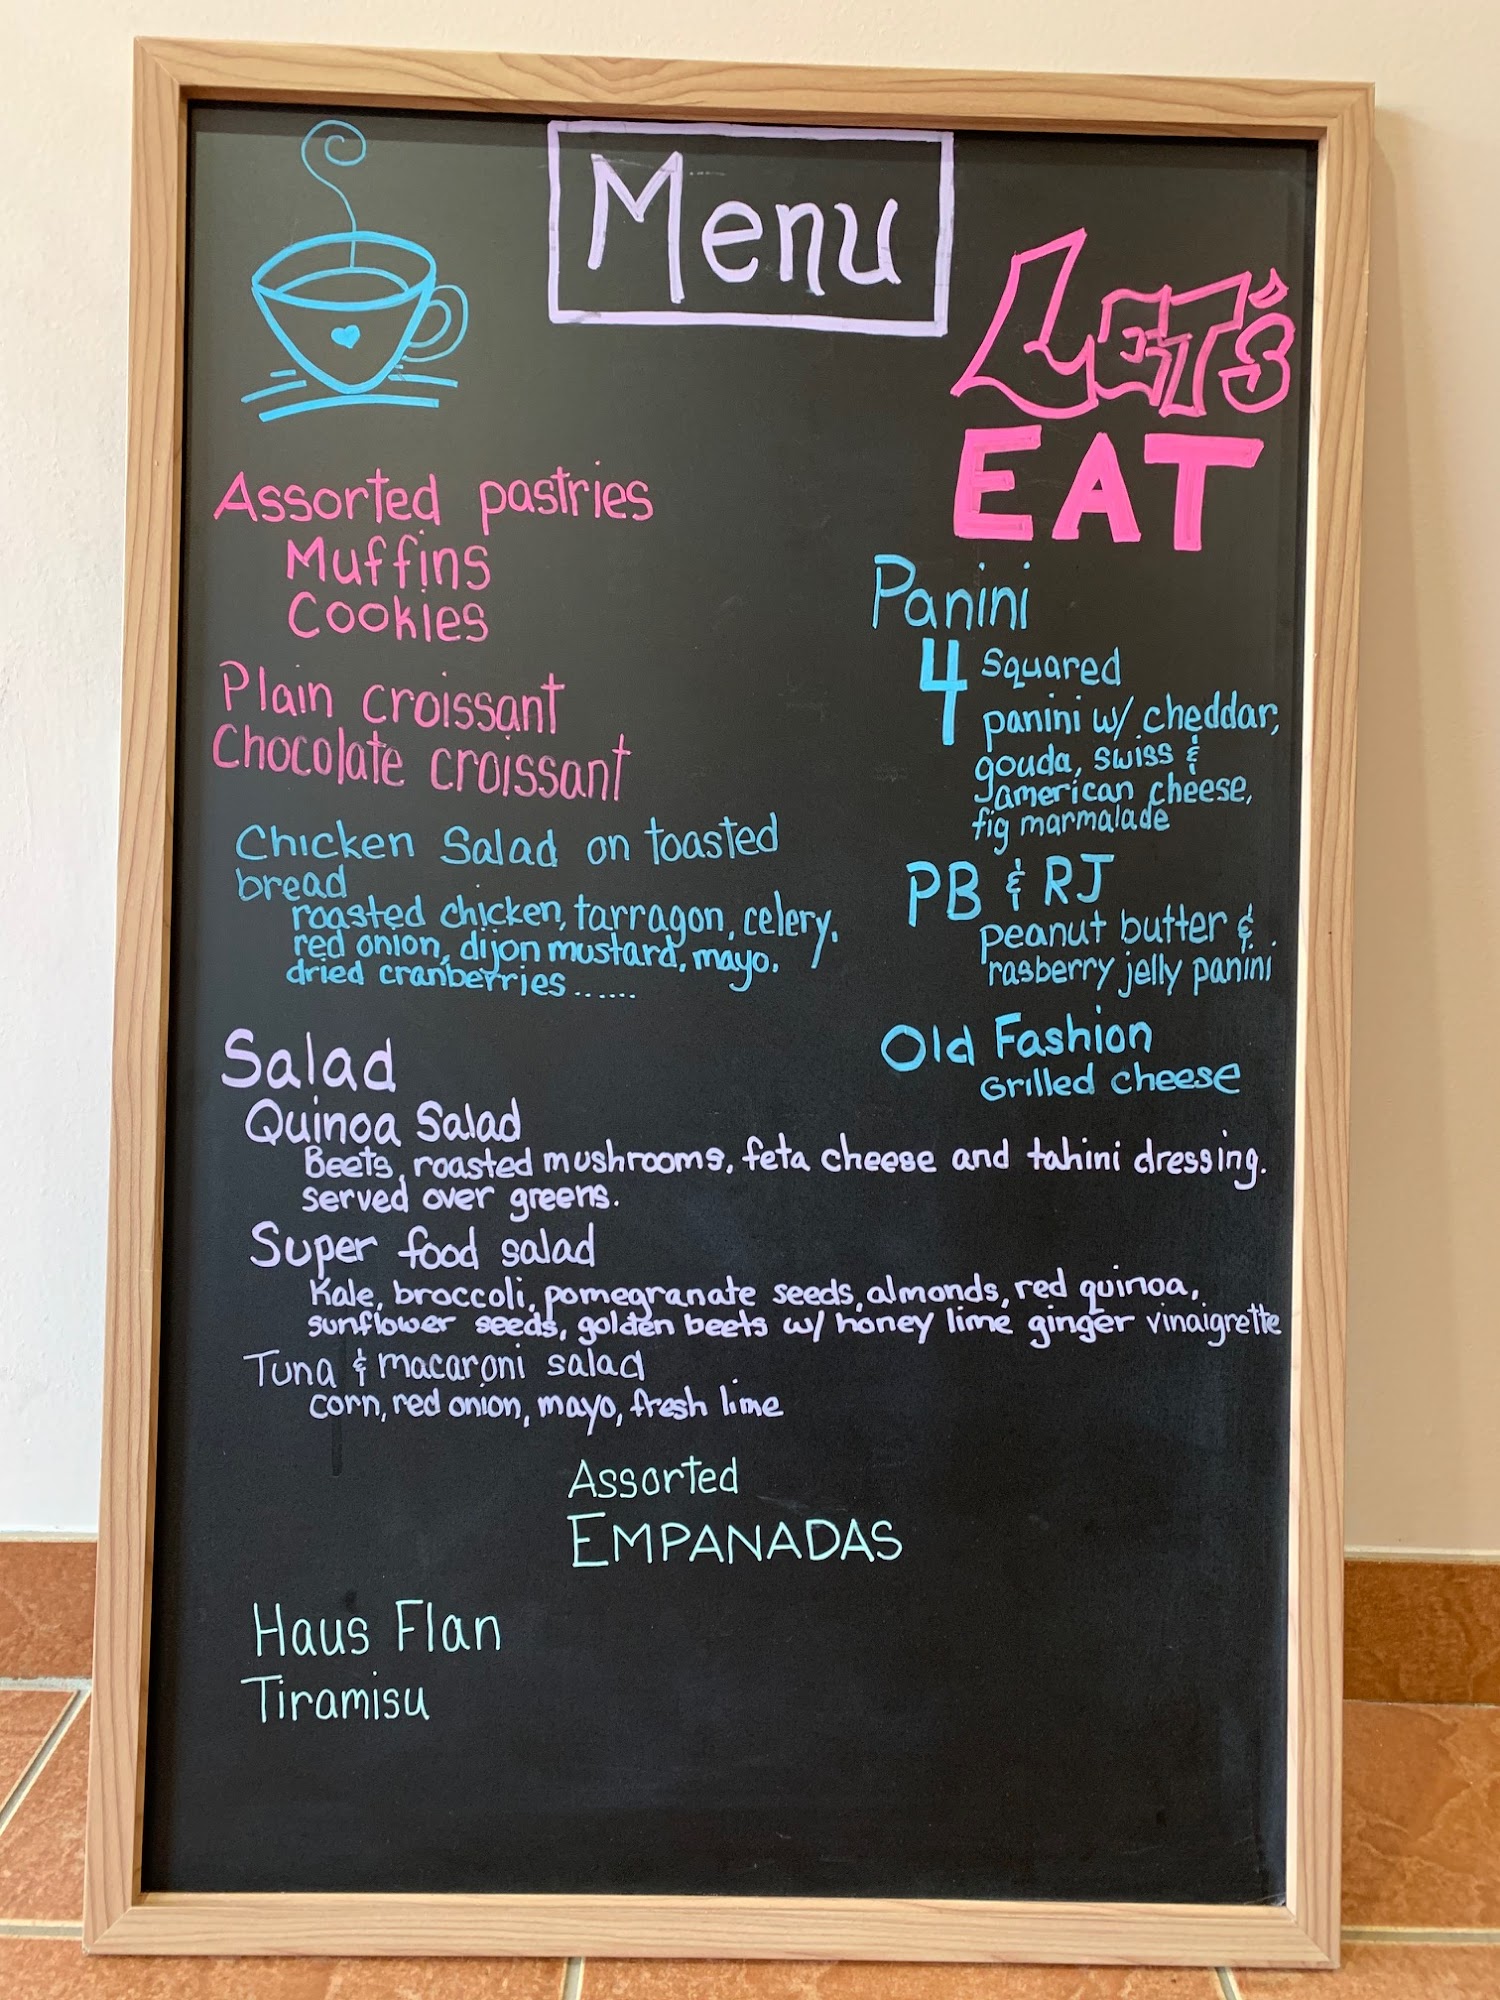 Menu
LET'S
EAT
Assorted pastries
Muffins
Cookies
Plain croissant
Chocolate croissant
Chicken Salad on toasted
bread
roasted chicken, tarragon, celery,
red onion, dijon mustard, mayo,
dried cranberries.......
Panini
4 Squared
panini w/ cheddar,
gouda, swiss &
american cheese,
fig marmalade
PB & RJ
peanut butter &
rasberry jelly panini
Old Fashion
Grilled cheese
Salad
Quinoa Salad
Beets, roasted mushrooms, feta cheese and tahini dressing.
served over greens.
Super food salad
Kale, broccoli, pomegranate seeds, almonds, red quinoa,
sunflower seeds, golden beets w/ honey lime ginger vinaigrette
Tuna & macaroni salad
corn, red onion, mayo, fresh lime
Assorted
EMPANADAS
Haus Flan
Tiramisu